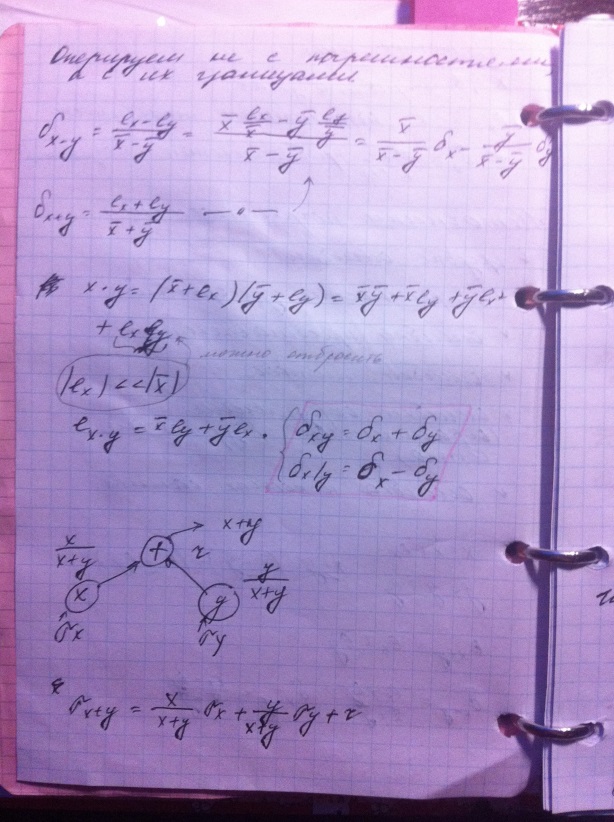 Оперируем не с погрешностями,
а с их границами
δx-y = (ex - ey)/(x̄ - ȳ) = (x̄ ex/x̄ - ȳ ey/ȳ)/(x̄ - ȳ) = x̄/(x̄ - ȳ) δx - ȳ/(x̄ - ȳ) δy
δx+y = (ex + ey)/(x̄ + ȳ) — " —
x · y = (x̄ + ex)(ȳ + ey) = x̄ȳ + x̄ey + ȳex +
+ ex ey = можно отбросить
|ex| << |x̄|
ex·y = x̄ey + ȳex .
{ δxy = δx + δy
δx/y = δx - δy
x+y
x/(x+y) + r y/(x+y)
x y
σx σy
σx+y = x/(x+y) σx + y/(x+y) σy + r